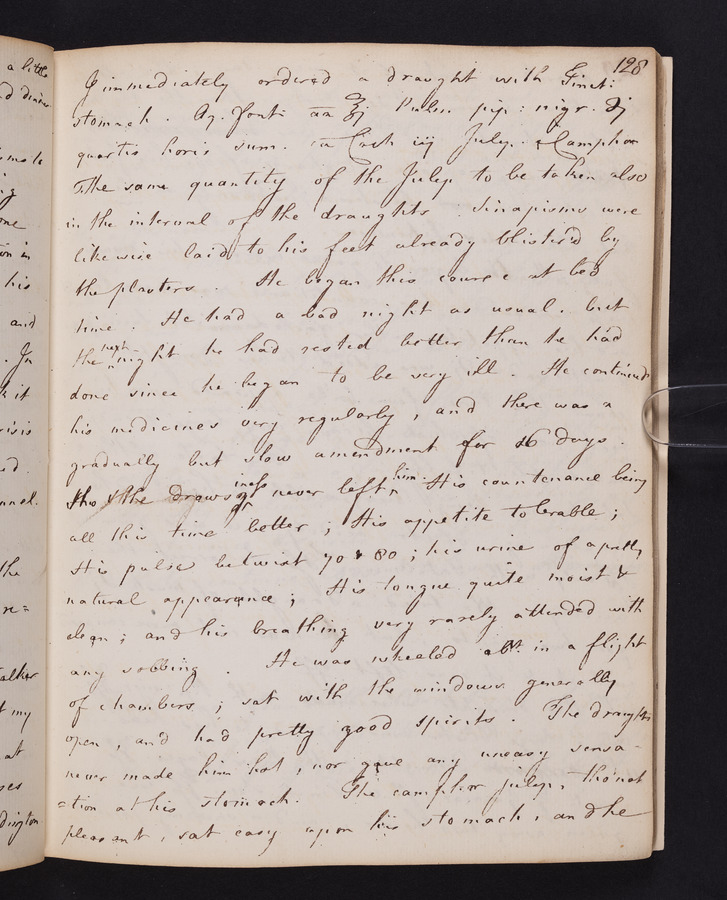 128
I immediately ordered a draught with Tinct:
stomach. Aq. font. aa ʒj Pulv. pip: nigr. ℈j
quartis horis sum. Coch iij Julep. Camphor
The same quantity of the Julep to be taken also
in the interval of the draughts. Sinapisms were
likewise laid to his feet already blister'd by
the plasters. He began this course at bed
time. He had a bad night as usual. but
the next night he had rested better than he had
done since he began to be very ill. He continued
his medicines very regularly, and there was a
gradually but slow amendment for 16 days.
The drowsiness never left him. His countenance being
all this time better; His appetite tolerable;
His pulse betwixt 70 & 80; his urine of a pretty
natural appearance; His tongue quite moist &
clean; and his breathing very rarely attended with
any sobbing. He was wheeled abt. in a flight
of chambers; sat with the windows generally
open, and had pretty good spirits. The draughts
never made him hot, nor gave any uneasy sensa-
=tion at his stomach. The camphor julep, tho' not
pleasant, sat easy upon his stomach, and he
a little
and
his
and
In
it
the
re=
my
at